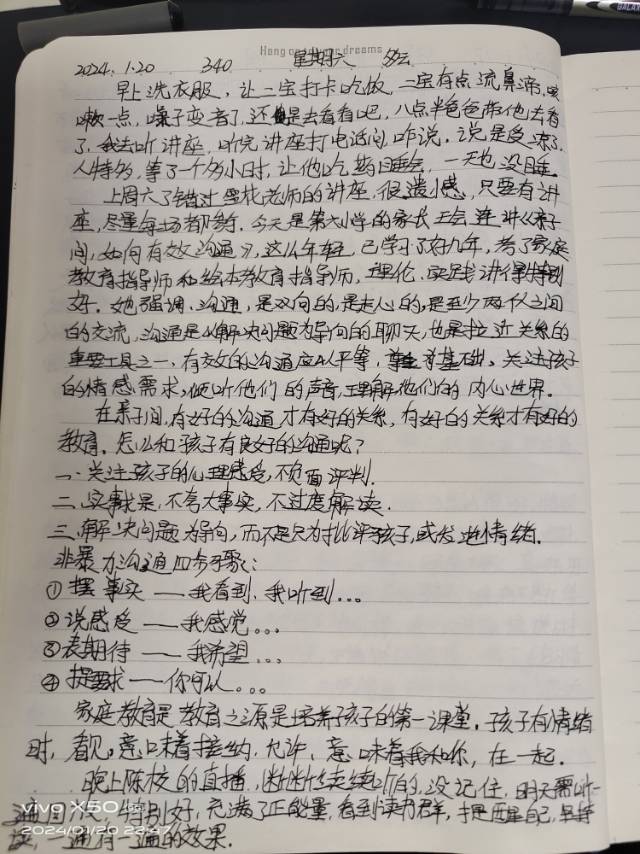 Hang on to your dreams
2024.1.20 340 星期六 多云
早上洗衣服，让二宝打卡吃饭，二宝有点流鼻涕，咳
嗽一点，嗓子变音了，还是去看看吧，八点半爸爸带他去看
了，我去听讲座，听完讲座打电话问，咋说，说是受凉了，
人特多，等了一个多小时，让他吃药睡会，一天也没睡。
上周六了错过雪花老师的讲座，很遗憾，只要有讲
座，尽量每场都参与，今天是第六小学的家长王会莲讲《亲子
间，如何有效沟通》，这么年轻，已学习了有九年，考了家庭
教育指导师和绘本教育指导师，理伦、实践讲得特别
好。她强调，沟通，是双向的，是走心的，是至少两个人之间
的交流，沟通是以解决问题为导向的聊天，也是拉近关系的
重要工具之一，有效的沟通应以平等，尊重为基础，关注孩子
的情感需求，倾听他们的声音，理解他们的内心世界。
在亲子间，有好的沟通才有好的关系，有好的关系才有好的
教育。怎么和孩子有良好的沟通呢？
一、关注孩子的心理感受，不负面评判.
二、实事求是，不夸大事实，不过度解读.
三、解决问题为导向，而不是只为批评孩子，或发泄情绪.
非暴力沟通四步骤：
①摆事实——我看到，我听到...
②说感受——我感觉...
③表期待——我希望...
④提要求——你可以...
家庭教育是教育之源是培养孩子的第一课堂。孩子有情绪
时，看见，意味着接纳，允许，意味着我和你，在一起.
晚上陈校的直播，断断续续听的，没记住，明天需听
遍回放，特别好，充满了正能量，看到读书群，提醒自己，坚持
读，一遍有一遍的效果.
vivo X50
2024/01/20 22:47
GALAX